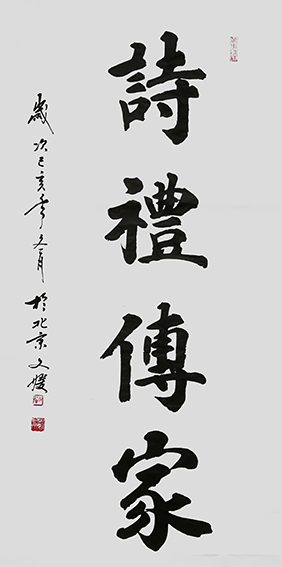 詩禮傳家
歲次己亥年冬月於北京文媛